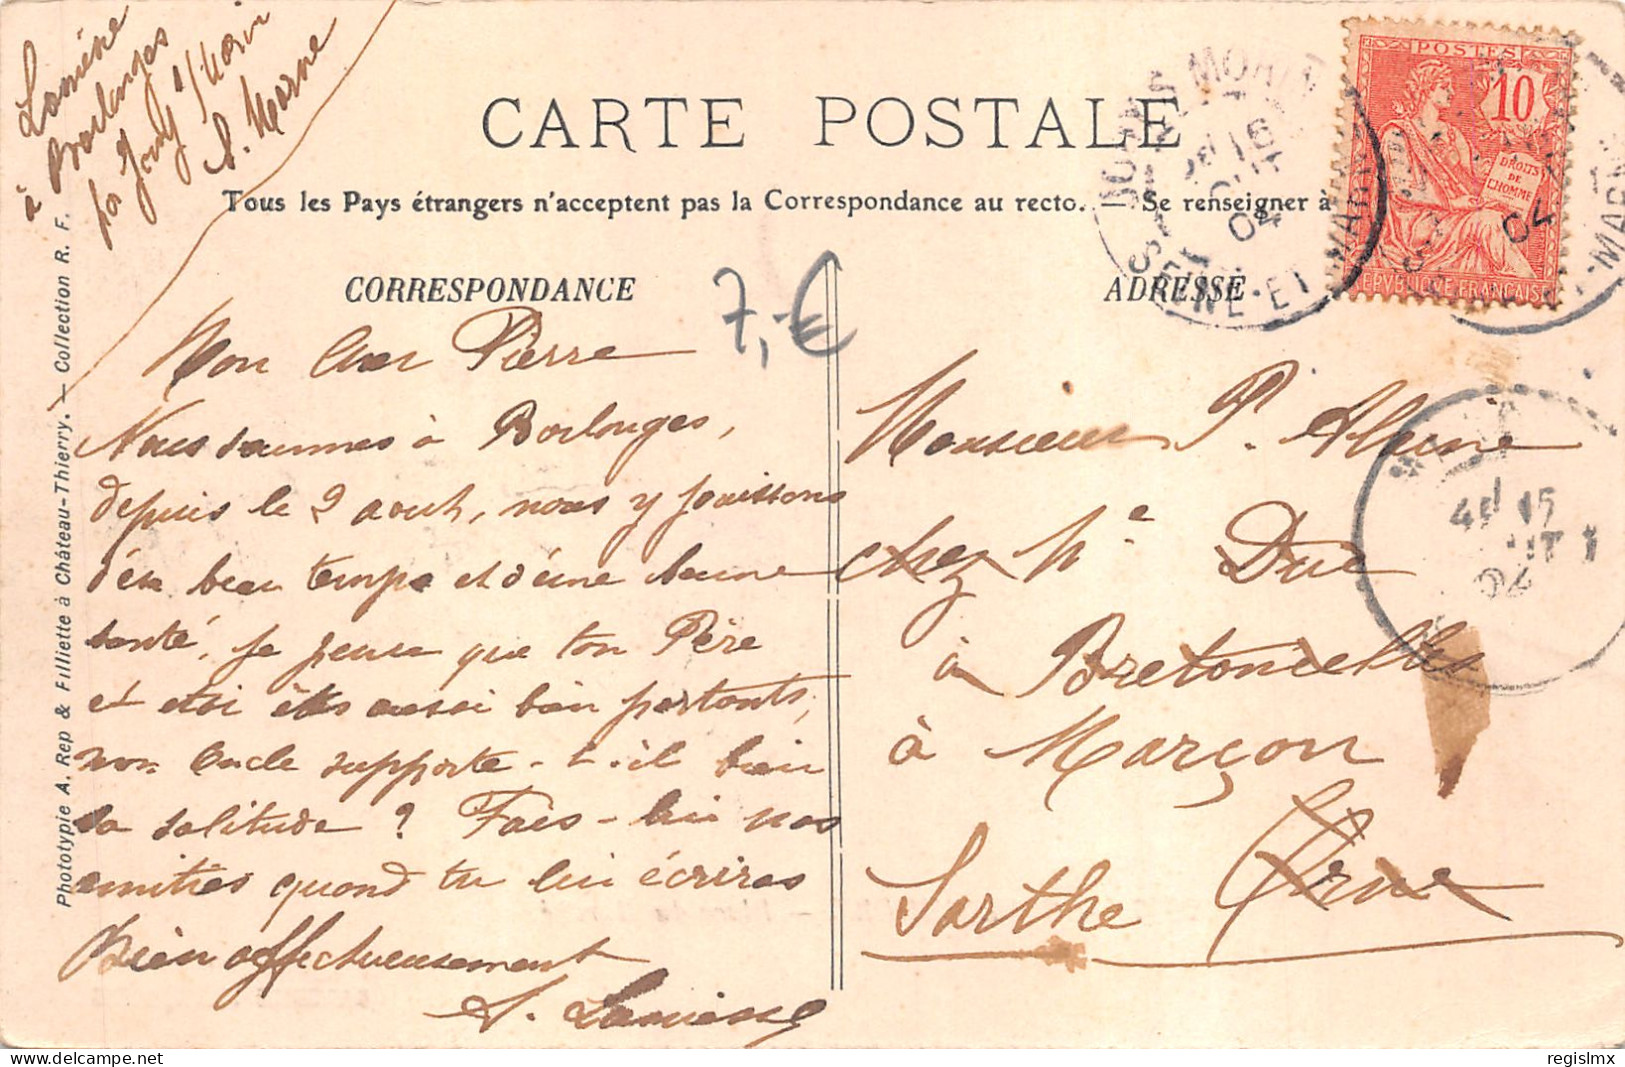 Lamiche
à Borlonges
par Jouy s/Morin
S. Marne
CARTE POSTALE
Tous les Pays étrangers n'acceptent pas la Correspondance au recto. — Se renseigner à
CORRESPONDANCE
ADRESSE
7,-€
Mon cher Pierre
Nous sommes à Borlonges,
depuis le 2 aout, nous y jouissons
d'un beau temps et d'une bonne
santé, je pense que ton Père
et toi êtes aussi bien portants,
mon Oncle supporte-t-il bien
sa solitude ? Fais-lui nos
amitiés quand tu lui écriras
Bien affectueusement
Monsieur P. Aleine
chez Me Due
à Bretoncelles
à Marçon
Sarthe Orne
POSTES
10
DROITS
DE
L'HOMME
REPUBLIQUE FRANÇAISE
MORIN
SEINE-ET-MARNE
04
15
04
Phototypie A. Rep & Filliette à Château-Thierry. — Collection R. F.
regislmx